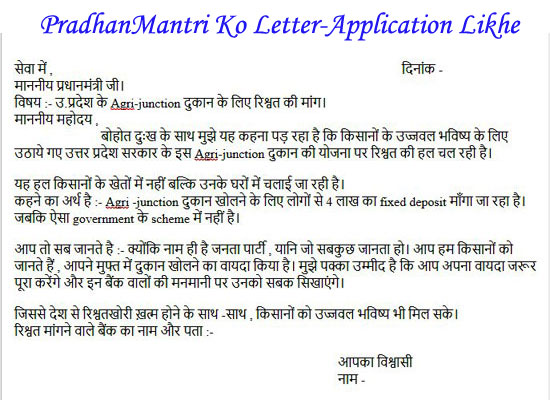 PradhanMantri Ko Letter-Application Likhe
सेवा में , दिनांक -
माननीय प्रधानमंत्री जी।
विषय :- उ.प्रदेश के Agri-junction दुकान के लिए रिश्वत की मांग।
माननीय महोदय ,
बोहोत दुःख के साथ मुझे यह कहना पड़ रहा है कि किसानों के उज्जवल भविष्य के लिए
उठाये गए उत्तर प्रदेश सरकार के इस Agri-junction दुकान की योजना पर रिश्वत की हल चल रही है।
यह हल किसानों के खेतों में नहीं बल्कि उनके घरों में चलाई जा रही है।
कहने का अर्थ है :- Agri -junction दुकान खोलने के लिए लोगों से 4 लाख का fixed deposit माँगा जा रहा है।
जबकि ऐसा government के scheme में नहीं है।
आप तो सब जानते है :- क्योंकि नाम ही है जनता पार्टी , यानि जो सबकुछ जानता हो। आप हम किसानों को
जानते हैं , आपने मुफ्त में दुकान खोलने का वायदा किया है। मुझे पक्का उम्मीद है कि आप अपना वायदा जरूर
पूरा करेंगे और इन बैंक वालों की मनमानी पर उनको सबक सिखाएंगे।
जिससे देश से रिश्वतखोरी ख़त्म होने के साथ -साथ , किसानों को उज्जवल भविष्य भी मिल सके।
रिश्वत मांगने वाले बैंक का नाम और पता :-
आपका विश्वासी
नाम -